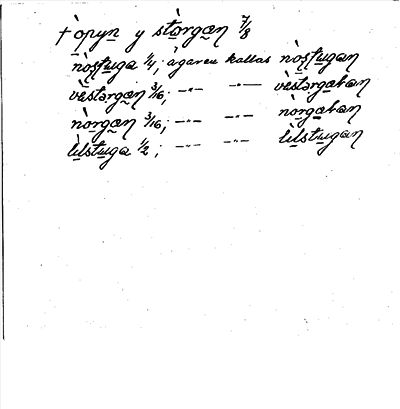 tòpyn y stàrgan 7/8
nòstuga 1/4, ägaren kallas nòstugan
vàstərgan 3/16, –"– –"– vàstərgakan
nòrgan 3/16, –"– –"– nòrgakan
lìlstuga 1/2, –"– –"– lìlstugan